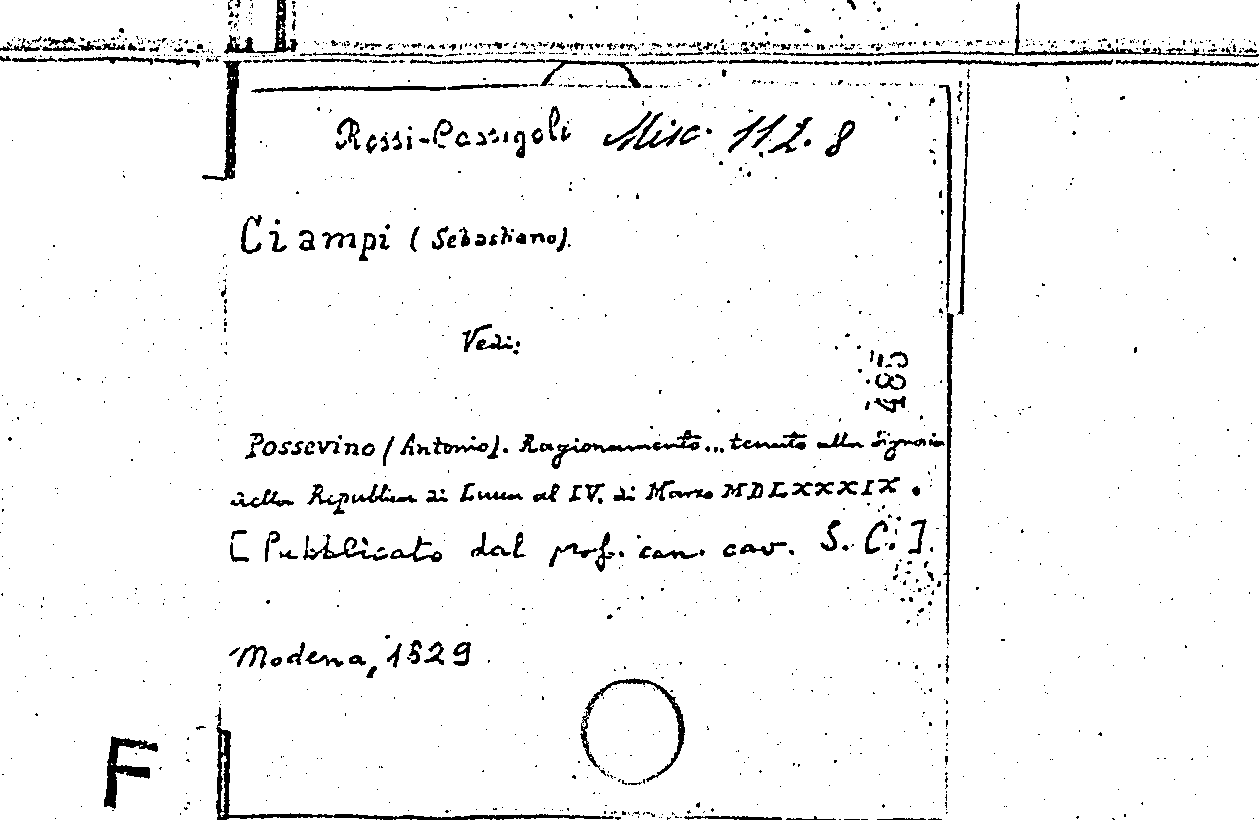 Rossi-Cassigoli Misc. 112.8
Ciampi (Sebastiano).
Vedi:
485
Possevino (Antonio). Ragionamento... tenuto alla Signoria
della Repubblica di Lucca al IV. di Marzo MDLXXXIX.
[Pubblicato dal prof. can. cav. S. C.].
Modena, 1829
F